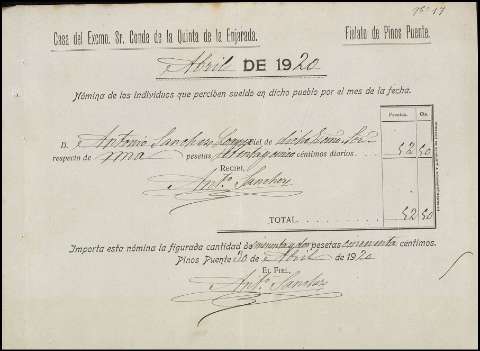 Nº 17
Casa del Excmo. Sr. Conde de la Quinta de la Enjarada.
Fielato de Pinos Puente.
Abril DE 1920
Nómina de los individuos que perciben sueldo en dicho pueblo por el mes de la fecha.
Pesetas. Cts.
D. Antonio Sanchez fiel de dicho Excmo. Sor.
respecto de una pesetas setenta y cinco céntimos diarios. 52 50
RECIBÍ,
Antº. Sanchez
TOTAL 52 50
Importa esta nómina la figurada cantidad de cincuenta y dos pesetas cincuenta céntimos.
Pinos Puente 30 de Abril de 1920
EL FIEL,
Antº. Sanchez